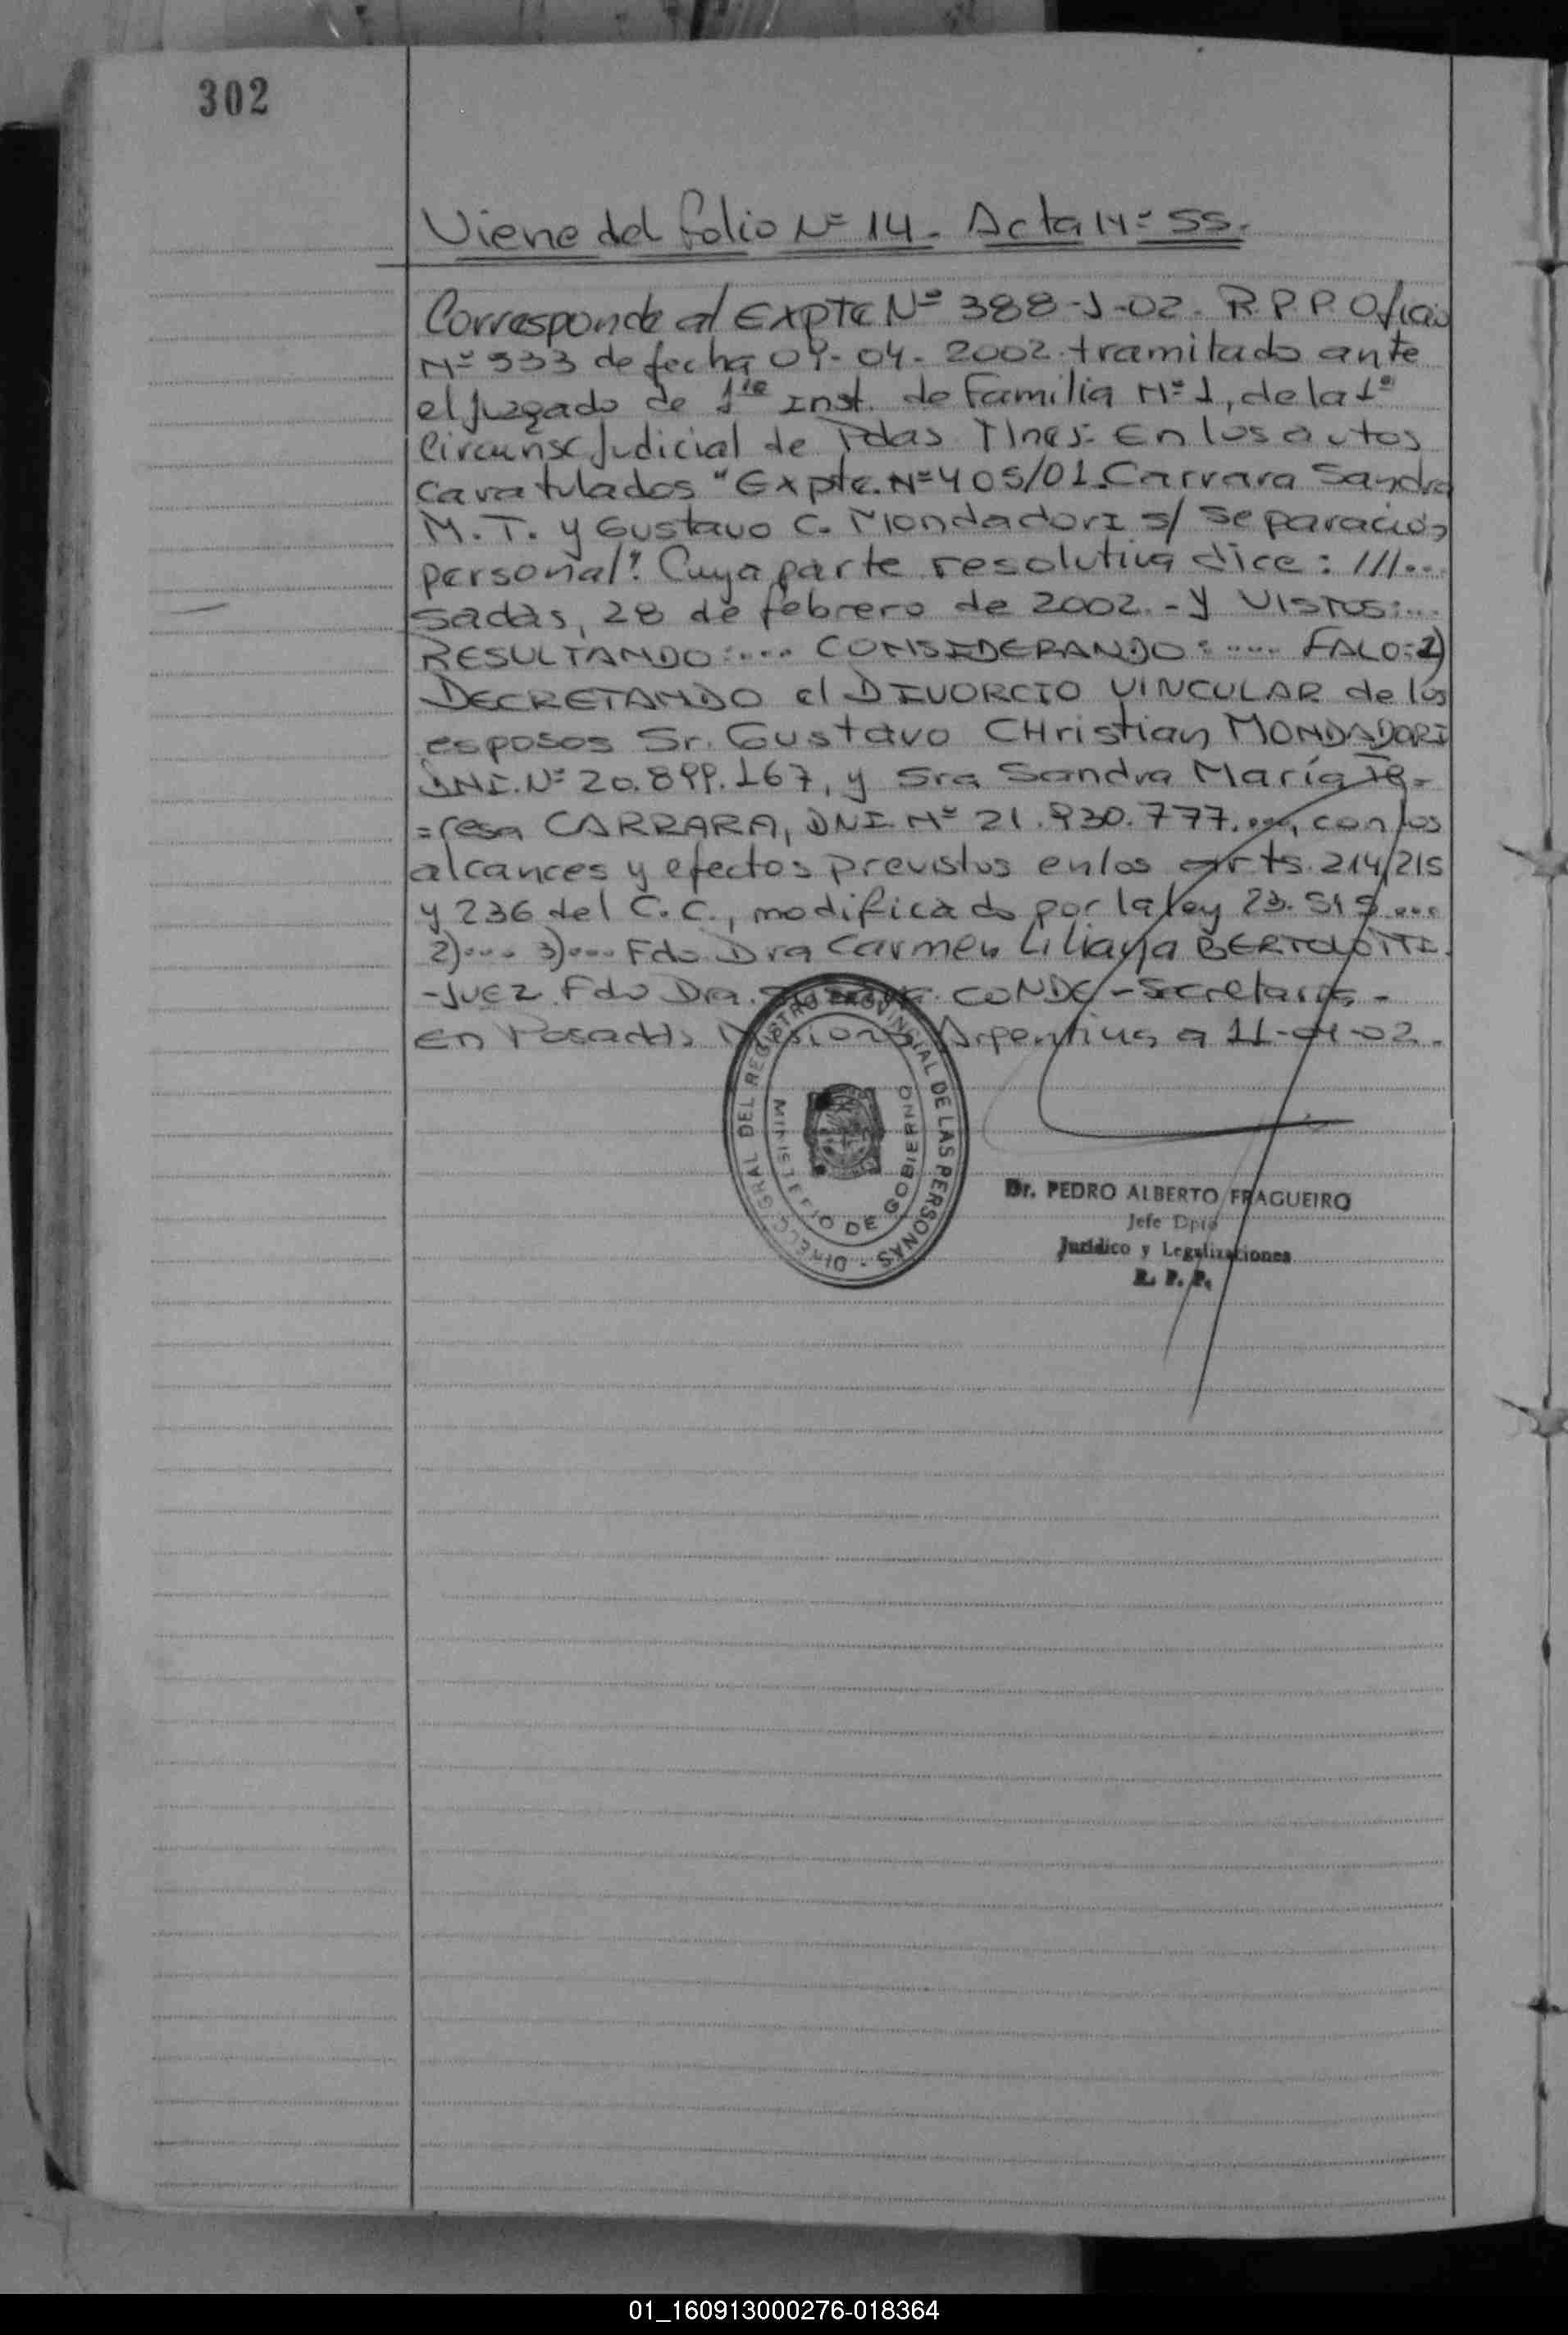 302
Viene del folio Nº 14. Acta Nº 55.
Corresponde al Expte Nº 388-J-02. R.P.P. Oficio
Nº 533 de fecha 09-04-2002 tramitado ante
el juzgado de 1ra Inst. de Familia Nº 1, de la 1ª
Circunsc Judicial de Pdas Mnes: En los autos
caratulados "Expte. Nº 405/01 Carrara Sandra
M.T. y Gustavo C. Mondadori s/ Separación
personal". Cuya parte resolutiva dice: ///...
sadas, 28 de febrero de 2002.- y VISTOS:...
RESULTANDO:.... CONSIDERANDO:.... FALO: 1)
DECRETANDO el DIVORCIO VINCULAR de los
esposos Sr. Gustavo CHristian MONDADORI
DNI. Nº 20.899.167, y Sra Sandra María Te-
=resa CARRARA, DNI Nº 21.930.777...., con los
alcances y efectos previstos en los arts. 214/215
y 236 del C.C., modificado por la ley 23.515...
2).... 3).... Fdo Dra Carmen Liliana BERTOLOTTI.
-JUEZ Fdo Dra. CONDE-Secretaria-
En Posadas Misiones Argentina, a 11-04-02.
DIREC. GRAL DEL REGISTRO PROVINCIAL DE LAS PERSONAS
MINISTERIO DE GOBIERNO
Dr. PEDRO ALBERTO FRAGUEIRO
Jefe Dpto
Jurídico y Legalizaciones
R. P. P.
01_160913000276-018364